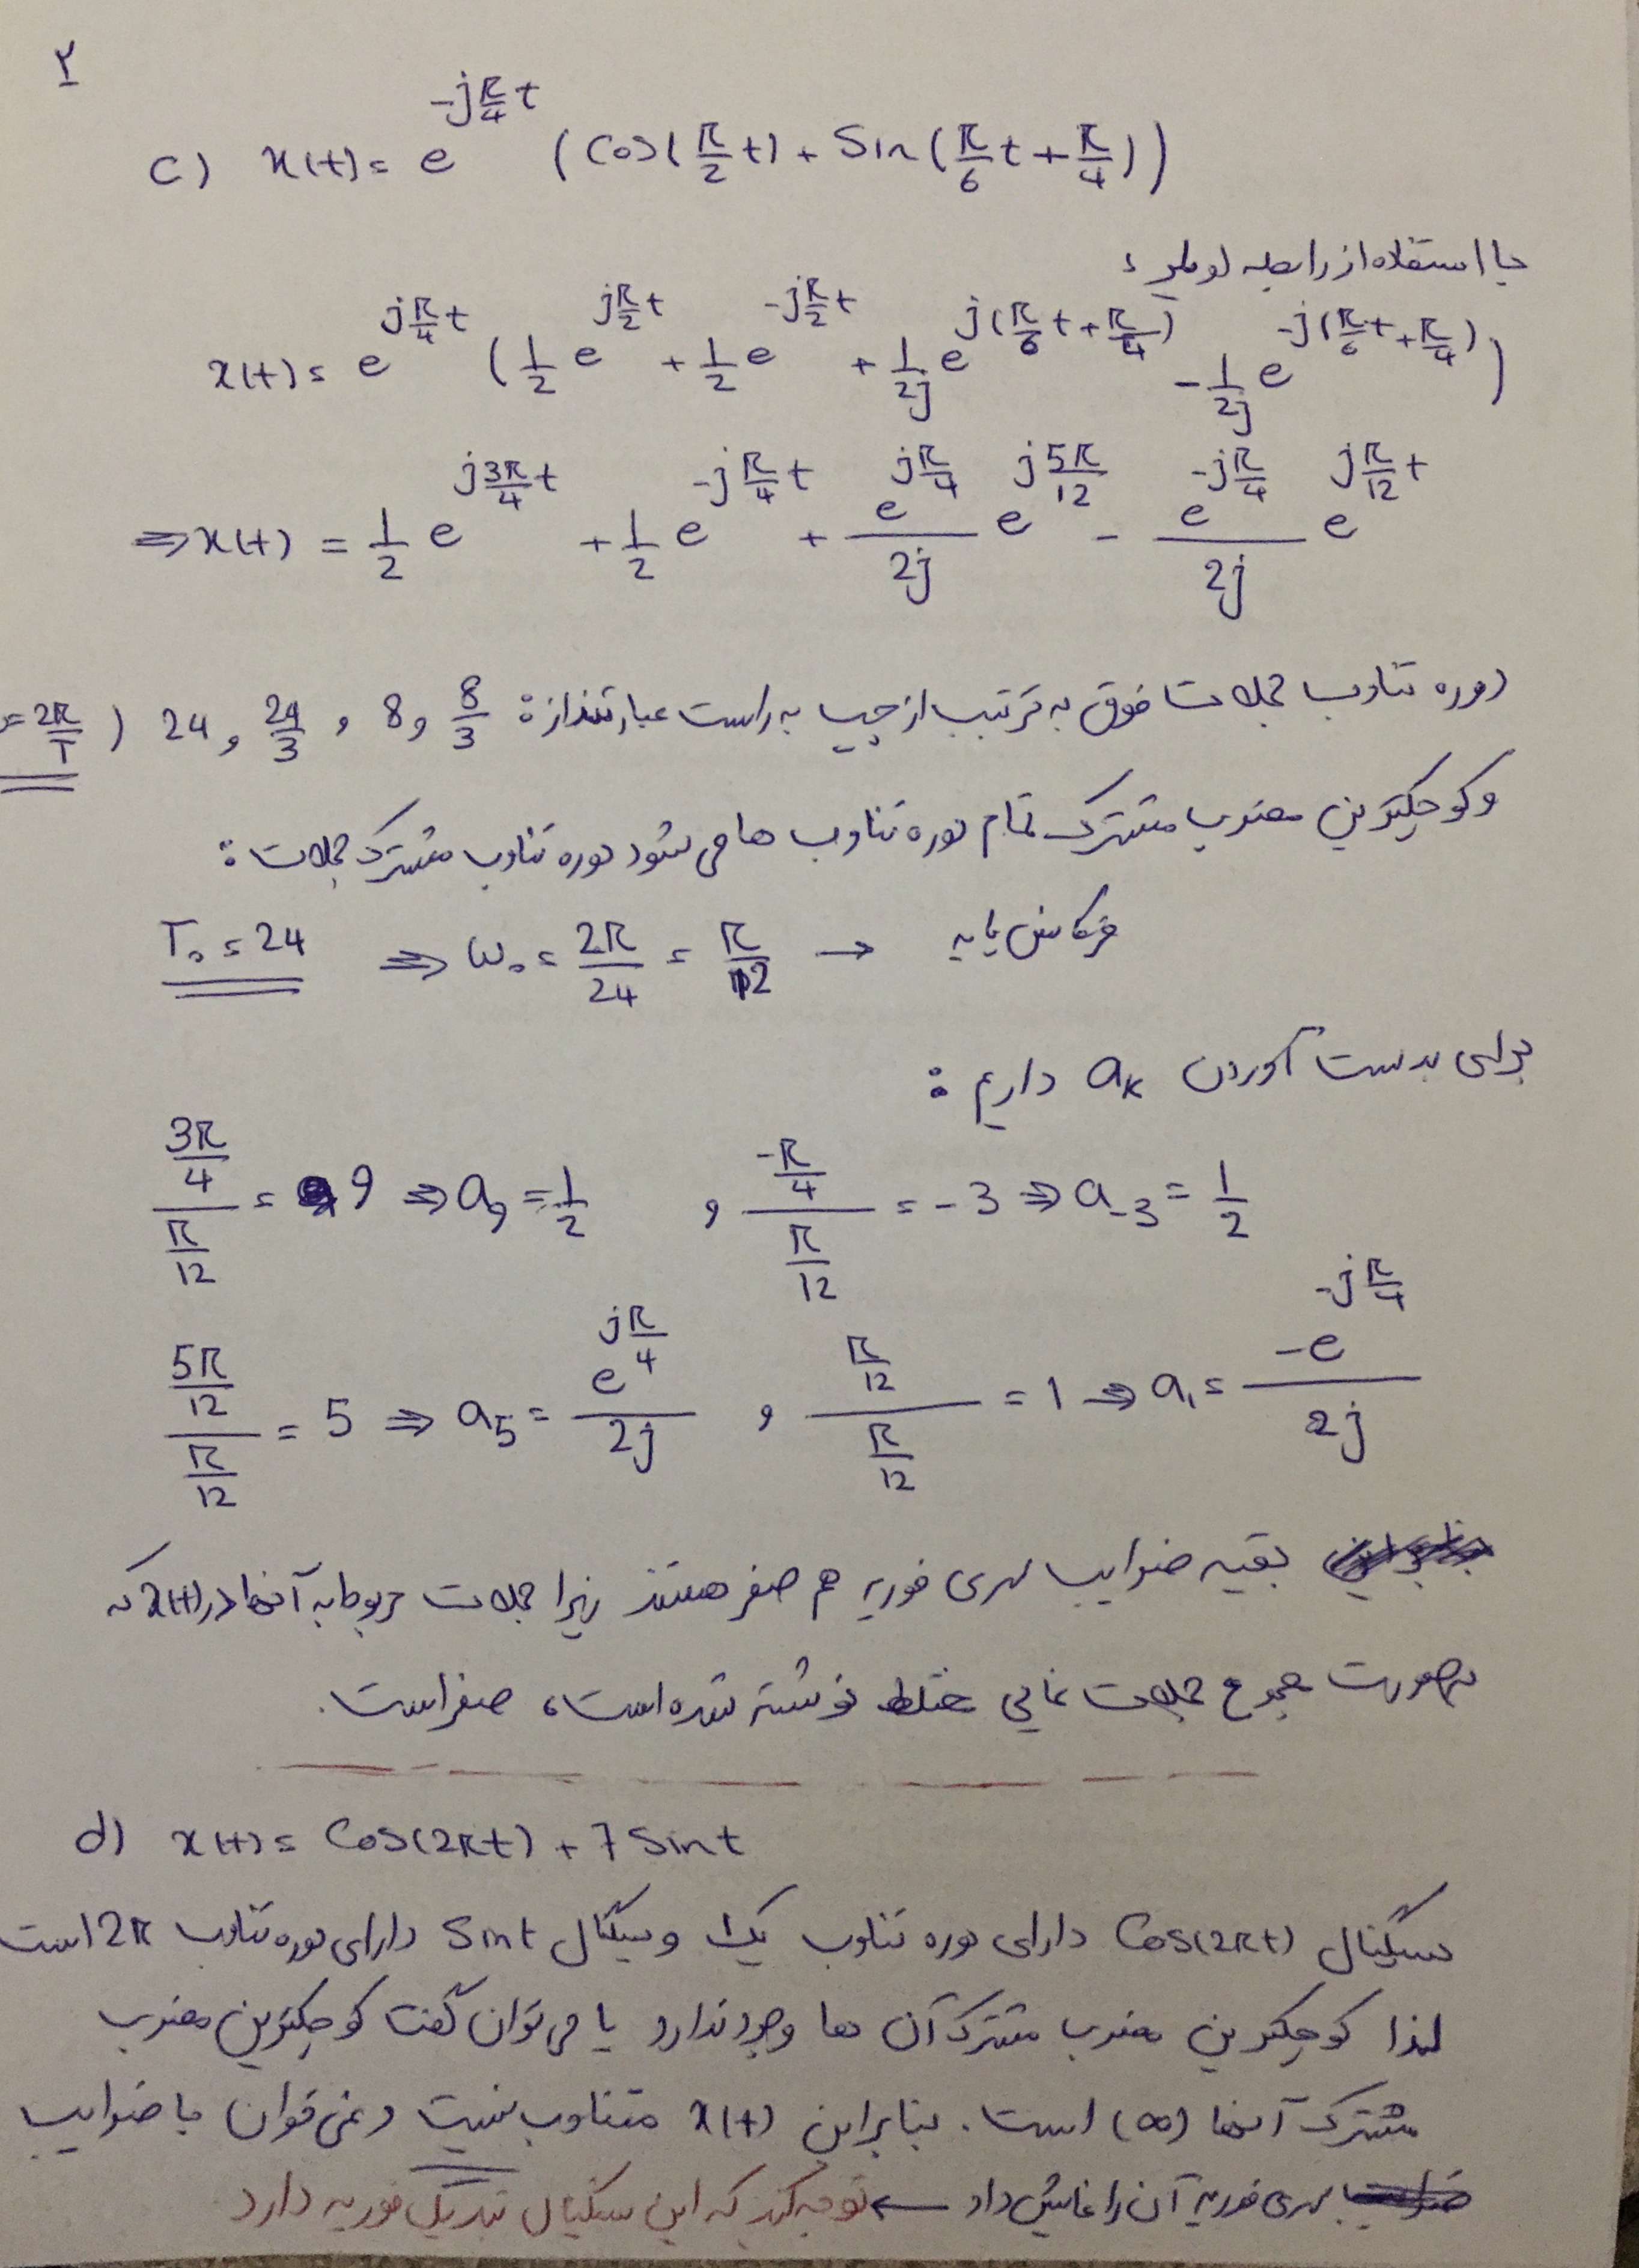 ۲
c) x(t) = e^{-jπ/4 t} (cos(π/2 t) + sin(π/6 t + π/4))
با استفاده از رابطه اویلر :
x(t) = e^{jπ/4 t} (1/2 e^{jπ/2 t} + 1/2 e^{-jπ/2 t} + 1/2j e^{j(π/6 t + π/4)} - 1/2j e^{-j(π/6 t + π/4)})
⇒ x(t) = 1/2 e^{j3π/4 t} + 1/2 e^{-jπ/4 t} + e^{jπ/4}/2j e^{j5π/12} - e^{-jπ/4}/2j e^{jπ/12 t}
دوره تناوب جملات فوق به ترتیب از چپ به راست عبارتنداز : 8/3 و 8 و 24/3 و 24 ( = 2π/T
وکوچکترین مضرب مشترک تمام دوره تناوب ها می شود دوره تناوب مشترک جملات :
T₀ = 24 ⇒ ω₀ = 2π/24 = π/12 → فرکانس پایه
برای بدست آوردن aₖ داریم :
(3π/4)/(π/12) = 9 ⇒ a₉ = 1/2 , (-π/4)/(π/12) = -3 ⇒ a₋₃ = 1/2
(5π/12)/(π/12) = 5 ⇒ a₅ = e^{jπ/4}/2j , (π/12)/(π/12) = 1 ⇒ a₁ = -e^{-jπ/4}/2j
بقیه ضرایب سری فوریه هم صفر هستند زیرا جملات مربوط به آنها در x(t) که
بصورت مجموع جملات نمایی مختلط نوشته شده است، صفراست.
d) x(t) = cos(2πt) + 7 sin t
سیگنال cos(2πt) دارای دوره تناوب یک و سیگنال sin t دارای دوره تناوب 2π است
لذا کوچکترین مضرب مشترک آن ها وجود ندارد یا می توان گفت کوچکترین مضرب
مشترک آنها (∞) است. بنابراین x(t) متناوب نیست و نمی توان با ضرایب
سری فوریه آن را نمایش داد ← توجه کنید که این سیگنال تبدیل فوریه دارد